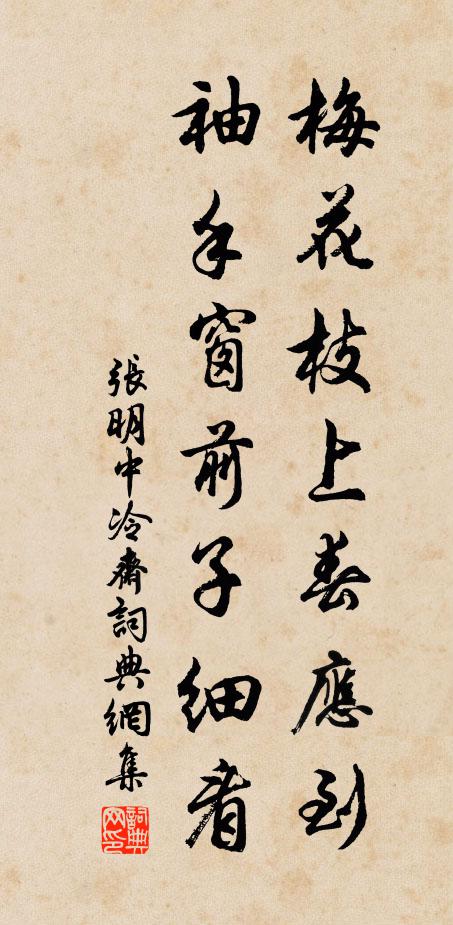 梅花枝上春應到
袖手窗前子細看
張明中冷齋詞典網集
詞典网印